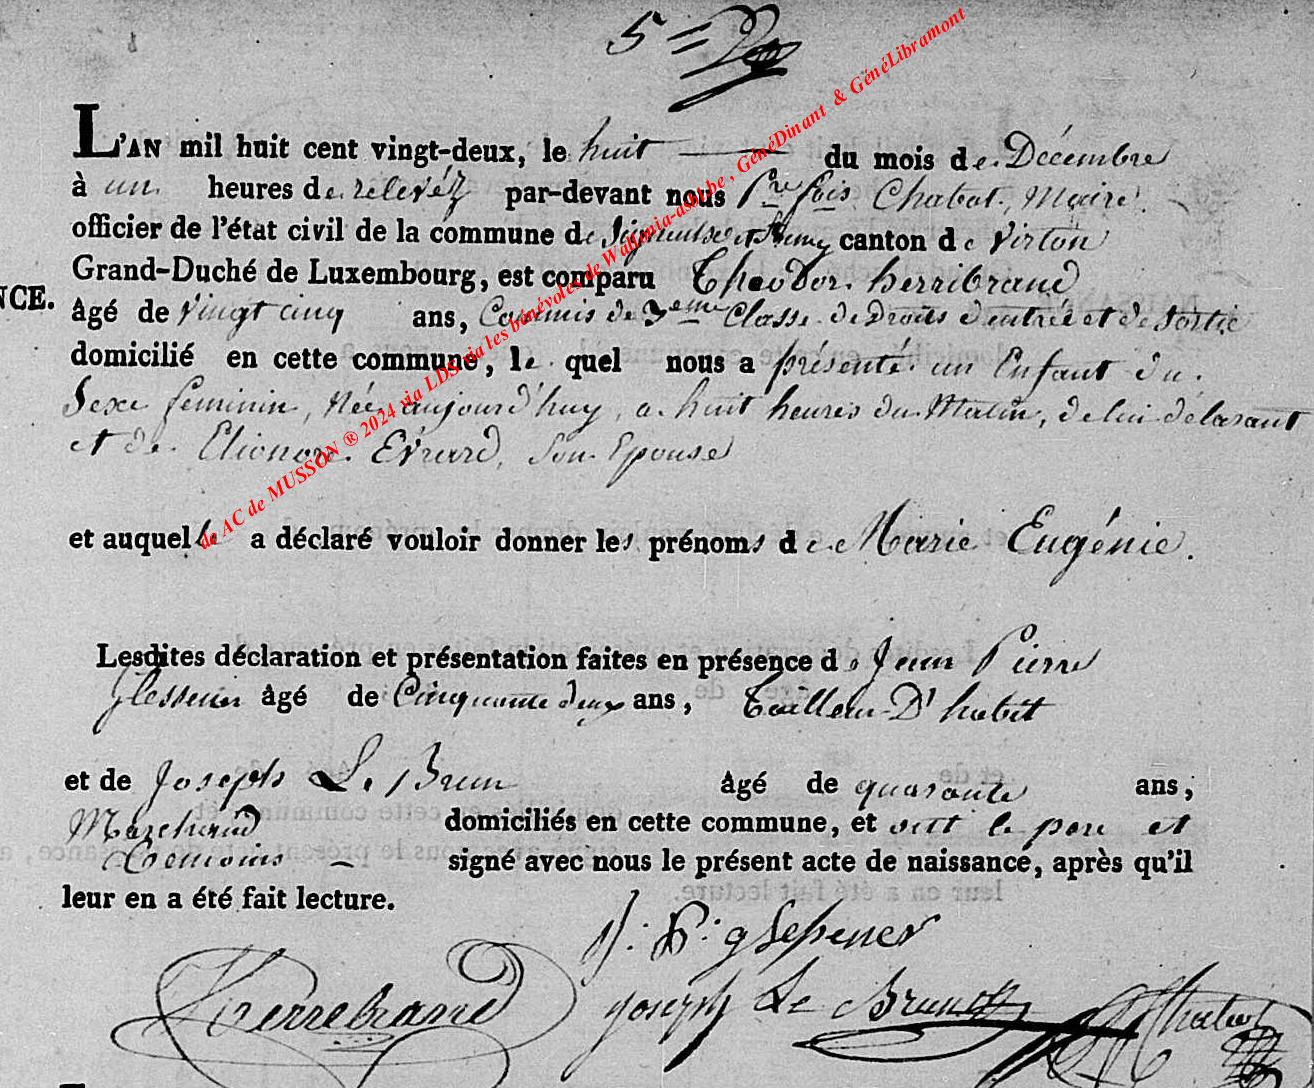 5
L'AN mil huit cent vingt-deux, le huit du mois de Décembre
à un heures de relevéz par-devant nous Pre fois Chabot, Maire
officier de l'état civil de la commune de canton de Virton
Grand-Duché de Luxembourg, est comparu Theodor herribrand
NCE.
âgé de Vingt cinq ans, Commis de 3eme Classe de Droits d'entréé et de Sortie
domicilié en cette commune, le quel nous a présenté un Enfant du
Sexe feminin, Née aujourd'huy, a huit heures du Matin, de lui délarant
et de Elionore Evrard, Son Epouse
et auquel le a déclaré vouloir donner les prénoms de Marie Eugénie.
Lesdites déclaration et présentation faites en présence de Jean Pierre
Glessener âgé de Cinquante deux ans, Tailleur D'habit
et de Joseph Le Brun âgé de quarante ans,
Marchand domiciliés en cette commune, et ont le pere et
temoins signé avec nous le présent acte de naissance, après qu'il
leur en a été fait lecture.
J. P. glessener
Herrebrand Joseph Le Brun Chabot
de AC de MUSSON ® 2024 via LDS via les bénévoles de Wallonia-asbl.be , GénéDinant & GénéLibramont